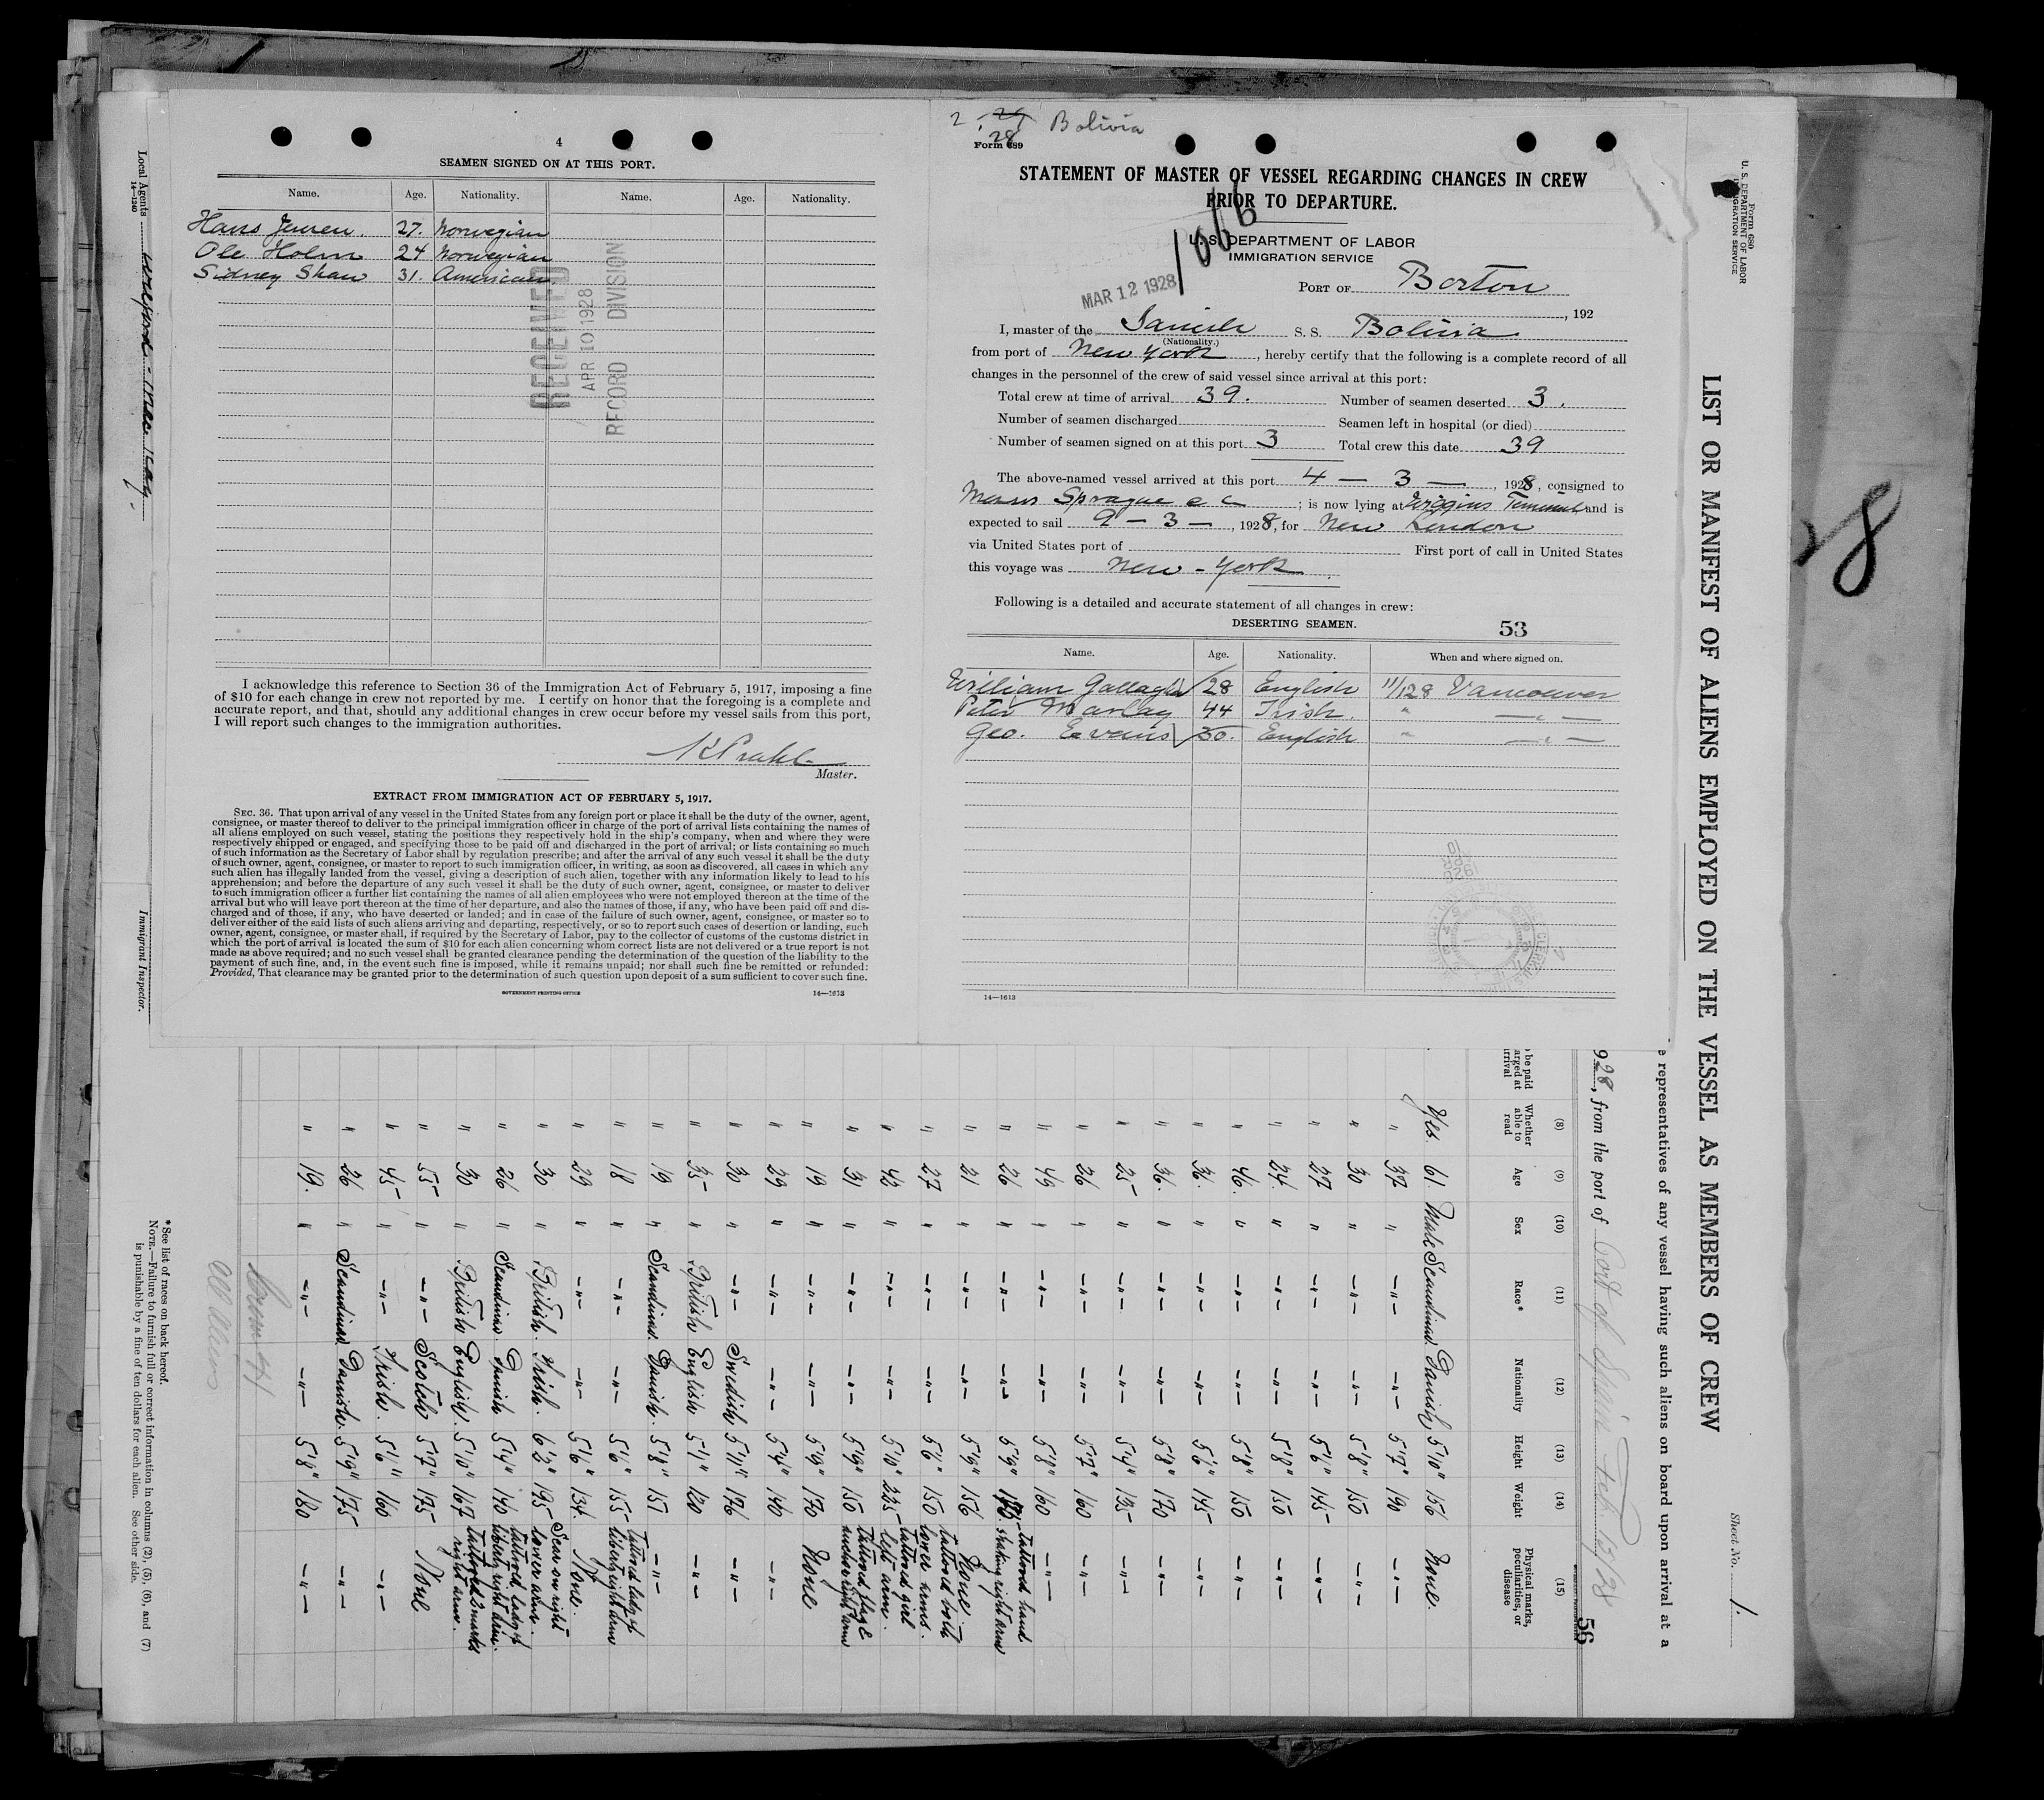 4
SEAMEN SIGNED ON AT THIS PORT.
Name. Age. Nationality. Name. Age. Nationality.
Hans Jensen. 27. Norwegian
Ole Holm 24 Norwegian
Sidney Shaw 31. American
RECEIVED
APR 10 1928
RECORD DIVISION
I acknowledge this reference to Section 36 of the Immigration Act of February 5, 1917, imposing a fine
of $10 for each change in crew not reported by me. I certify on honor that the foregoing is a complete and
accurate report, and that, should any additional changes in crew occur before my vessel sails from this port,
I will report such changes to the immigration authorities.
Master.
EXTRACT FROM IMMIGRATION ACT OF FEBRUARY 5, 1917.
SEC. 36. That upon arrival of any vessel in the United States from any foreign port or place it shall be the duty of the owner, agent,
consignee, or master thereof to deliver to the principal immigration officer in charge of the port of arrival lists containing the names of
all aliens employed on such vessel, stating the positions they respectively hold in the ship's company, when and where they were
respectively shipped or engaged, and specifying those to be paid off and discharged in the port of arrival; or lists containing so much
of such information as the Secretary of Labor shall by regulation prescribe; and after the arrival of any such vessel it shall be the duty
of such owner, agent, consignee, or master to report to such immigration officer, in writing, as soon as discovered, all cases in which any
such alien has illegally landed from the vessel, giving a description of such alien, together with any information likely to lead to his
apprehension; and before the departure of any such vessel it shall be the duty of such owner, agent, consignee, or master to deliver
to such immigration officer a further list containing the names of all alien employees who were not employed thereon at the time of the
arrival but who will leave port thereon at the time of her departure, and also the names of those, if any, who have been paid off and dis-
charged and of those, if any, who have deserted or landed; and in case of the failure of such owner, agent, consignee, or master so to
deliver either of the said lists of such aliens arriving and departing, respectively, or so to report such cases of desertion or landing, such
owner, agent, consignee, or master shall, if required by the Secretary of Labor, pay to the collector of customs of the customs district in
which the port of arrival is located the sum of $10 for each alien concerning whom correct lists are not delivered or a true report is not
made as above required; and no such vessel shall be granted clearance pending the determination of the question of the liability to the
payment of such fine, and, in the event such fine is imposed, while it remains unpaid; nor shall such fine be remitted or refunded:
Provided, That clearance may be granted prior to the determination of such question upon deposit of a sum sufficient to cover such fine.
GOVERNMENT PRINTING OFFICE 14—1613
28 Bolivia
Form 689
STATEMENT OF MASTER OF VESSEL REGARDING CHANGES IN CREW
PRIOR TO DEPARTURE.
1066
U. S. DEPARTMENT OF LABOR
IMMIGRATION SERVICE
MAR 12 1928
PORT OF Boston
, 192
I, master of the Danish S. S. Bolivia
(Nationality.)
from port of New York, hereby certify that the following is a complete record of all
changes in the personnel of the crew of said vessel since arrival at this port:
Total crew at time of arrival 39. Number of seamen deserted 3.
Number of seamen discharged Seamen left in hospital (or died)
Number of seamen signed on at this port 3 Total crew this date 39
The above-named vessel arrived at this port 4 — 3 —, 1928, consigned to
Messrs Sprague & C; is now lying at Wiggins Terminal and is
expected to sail 9 — 3 —, 1928, for New London
via United States port of First port of call in United States
this voyage was New-York.
Following is a detailed and accurate statement of all changes in crew:
DESERTING SEAMEN. 53
Name. Age. Nationality. When and where signed on.
William Gallagher 28 English 11/1 28 Vancouver
Peter 44 Irish. " — " —
Geo. Evans 30. English " — " —
14—1613
Local Agents
14-1240
Immigrant Inspector.
Form 680
U. S. DEPARTMENT OF LABOR
IMMIGRATION SERVICE
28
Sheet No. 1.
LIST OR MANIFEST OF ALIENS EMPLOYED ON THE VESSEL AS MEMBERS OF CREW
e representatives of any vessel having such aliens on board upon arrival at a
928, from the port of Port of Spain Feb.
56
(8) (9) (10) (11) (12) (13) (14) (15)
Whether able to read Age Sex Race* Nationality Height Weight Physical marks, peculiarities, or disease
Yes. 61 Male Scandinav. Danish 5'10" 156 None.
" 37 " —"— —"— 5'7" 190 —"—
" 30 " —"— —"— 5'8" 150 —"—
" 27 " —"— —"— 5'6" 145 —"—
" 24. " —"— —"— 5'8" 150 —"—
" 46. " —"— —"— 5'8" 150 —"—
" 36. " —"— —"— 5'6" 145 —"—
" 36. " —"— —"— 5'8" 170 —"—
" 25 " —"— —"— 5'4" 135 —"—
" 26 " —"— —"— 5'7" 160 —"—
" 49 " —"— —"— 5'8" 160 —"—
" 26 " —"— —"— 5'9" tattoed hand shaking right arm
" 21 " —"— —"— 5'9" 156 None.
" 27 " —"— —"— 5'6" 150 tattoed both lower arms.
" 42 " —"— —"— 5'10" 225 tattoed girl left arm.
" 31 " —"— —"— 5'9" 150 tattoed flag & anchor right arm
" 19 " —"— —"— 5'9" 170 None
" 29 " —"— —"— 5'4" 140 —"—
" 30 " —"— Swedish 5'11" 176 —"—
" 35 " British English 5'1" 120 —"—
" 19 " Scandinav. Danish. 5'8" 151 —"—
" 18 " —"— —"— 5'6" 155 Tattoed lady of liberty right arm
" 29 " —"— —"— 5'6" 134. None.
" 30 " British. Irish. 6'2" 195 Scar on right lower arm.
" 26 " Scandinav. Danish 5'4" 140 tattoed lady of liberty right arm.
" 30 " British English. 5'10" 167 tattoed 2 marks right arm.
" 55 " —"— Scotch 5'7" 175 None
" 45 " —"— Irish. 5'6" 160 —"—
" 26 " Scandinav. Danish. 5'9" 175 —"—
" 19. " —"— —"— 5'8" 180 —"—
All Aliens
*See list of races on back hereof.
NOTE.—Failure to furnish full or correct information in columns (2), (5), (6), and (7)
is punishable by a fine of ten dollars for each alien. See other side.